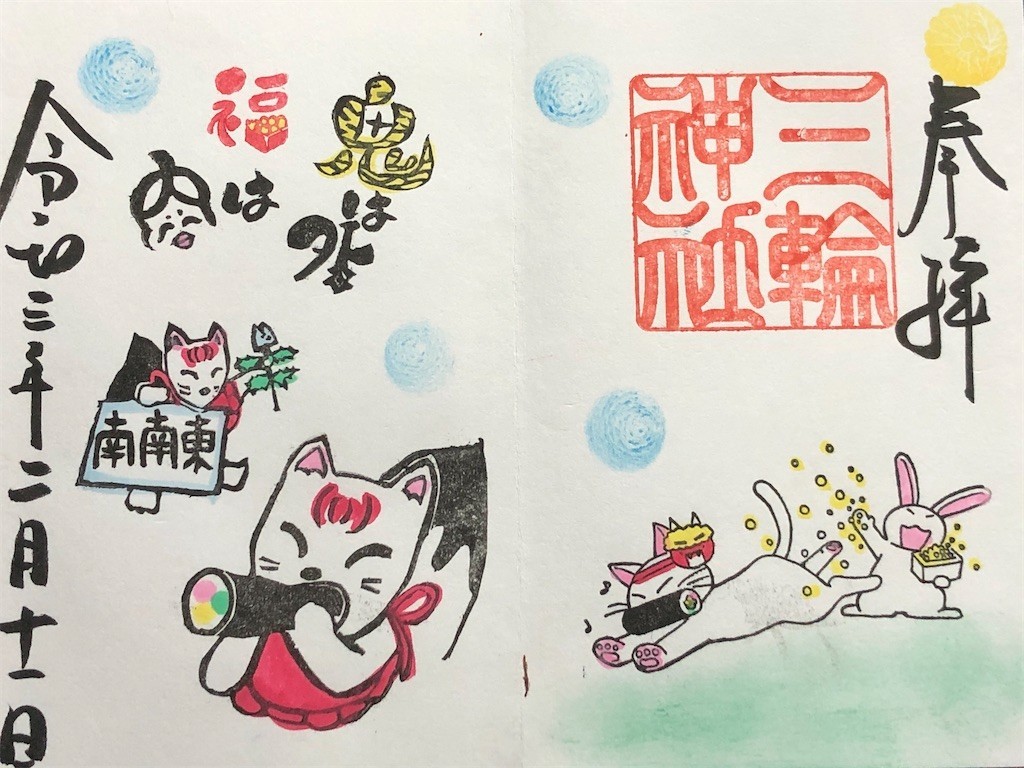 奉拝
三輪
神社
鬼は
外
福
は
内
南南東
令和三年二月十一日